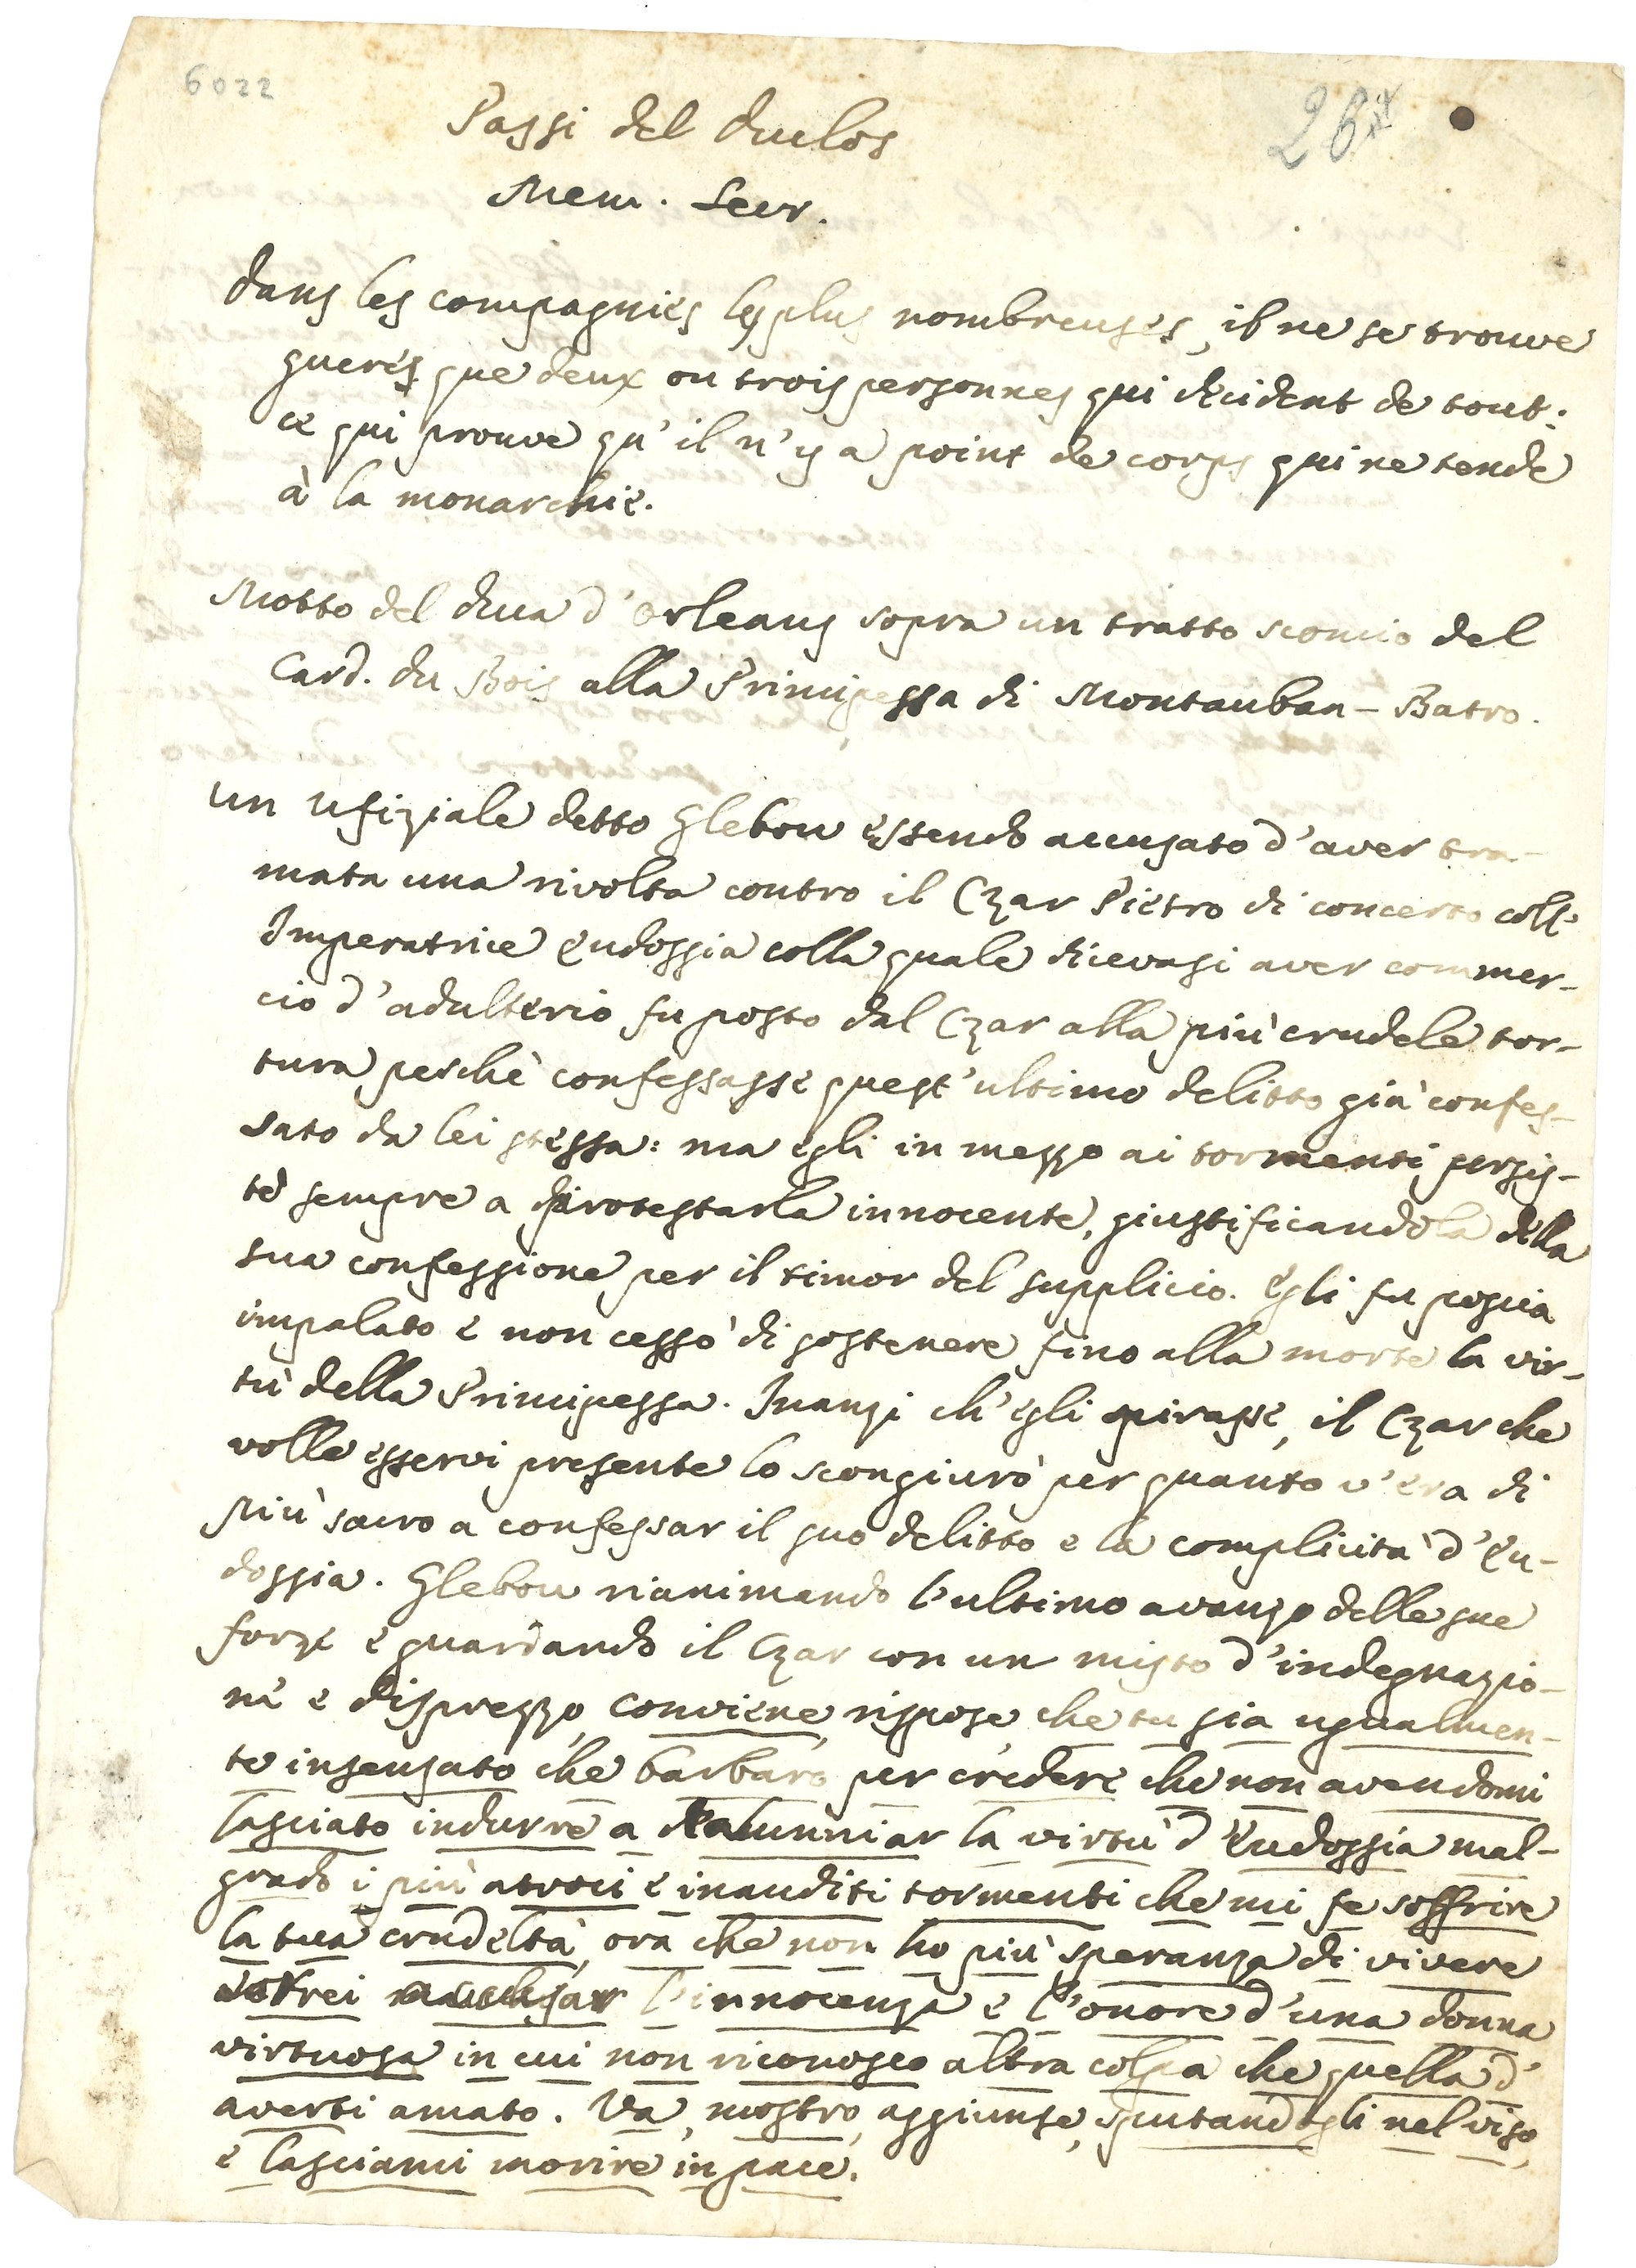 6022
26
Passi del Duclos
Mem. Secr.
Dans les compagnies les plus nombreuses, il ne se trouve
guerès que deux ou trois personnes qui decident de tout:
ce qui prouve qu'il n'y a point de corps qui ne tende
à la monarchie.
Motto del Duca d'Orleans sopra un tratto sconcio del
Card. du Bois alla Principessa di Montauban - Batro.
Un Ufiziale detto Glebow essendo accusato d'aver tra-
mata una rivolta contro il Czar Pietro di concerto coll'
Imperatrice Eudossia colla quale dicevasi aver commer-
cio d'adulterio fu posto dal Czar alla più crudele tor-
tura perchè confessasse quest'ultimo delitto già confes-
sato da lei stessa: ma egli in mezzo ai tormenti persis-
tè sempre a protestarla innocente, giustificandola della
sua confessione per il timor del supplicio. Egli fu poscia
impalato e non cessò di sostenere fino alla morte la vir-
tù della Principessa. Inanzi ch'egli spirasse, il Czar che
volle esservi presente lo scongiurò per quanto v'era di
più sacro a confessar il suo delitto e la complicità d'Eu-
dossia. Glebow rianimando l'ultimo avanzo delle sue
forze e guardando il Czar con un misto d'indegnazio-
ne e disprezzo, conviene, rispose, che tu sia ugualmen-
te insensato che barbaro per credere che non avendomi
lasciato indurre a calunniar la virtù d'Eudossia mal-
grado i più atroci e inauditi tormenti che mi fe soffrire
la tua crudeltà, ora che non ho più speranza di vivere
votrei l'innocenza e l'onore d'una donna
virtuosa in cui non riconosco altra colpa che quella d'
averti amato. Va, mostro, aggiunse, sputandogli nel viso,
e lasciami morire in pace.